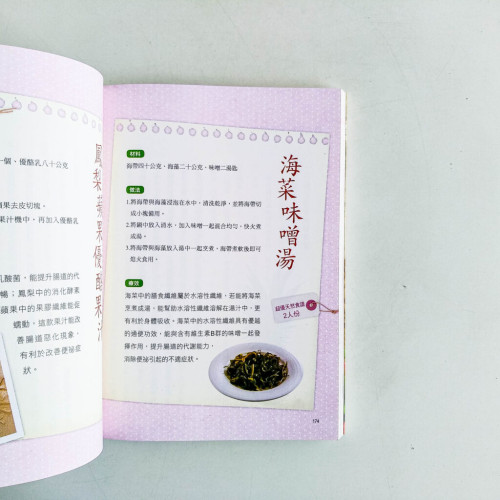 一個、優酪乳八十公克
蘋果去皮切塊。
果汁機中,再加入優酪乳
乳酸菌,能提升腸道的代
暢;鳳梨中的消化酵素
蘋果中的果膠纖維能促
蠕動,這款果汁能改
善腸道惡化現象,
有利於改善便祕症
狀。
鳳梨蘋果優酪果汁
海菜味噌湯
材料
海帶四十公克,海藻二十公克,味噌二湯匙
做法
1.將海帶與海藻浸泡在水中,清洗乾淨,並將海帶切
成小塊備用。
2.將鍋中放入清水,加入味噌一起混合均勻,快火煮
成湯。
3.將海帶與海藻放入湯中一起烹煮,海帶煮軟後即可
熄火食用。
療效
海菜中的膳食纖維屬於水溶性纖維,若能將海菜
烹煮成湯,能幫助水溶性纖維溶解在湯汁中,更
有利於身體吸收。海菜中的水溶性纖維具有優越
的通便功效,能與含有維生素B群的味噌一起發
揮作用,提升腸道的代謝能力,
消除便祕引起的不適症狀。
超優天然食譜
2人份
174